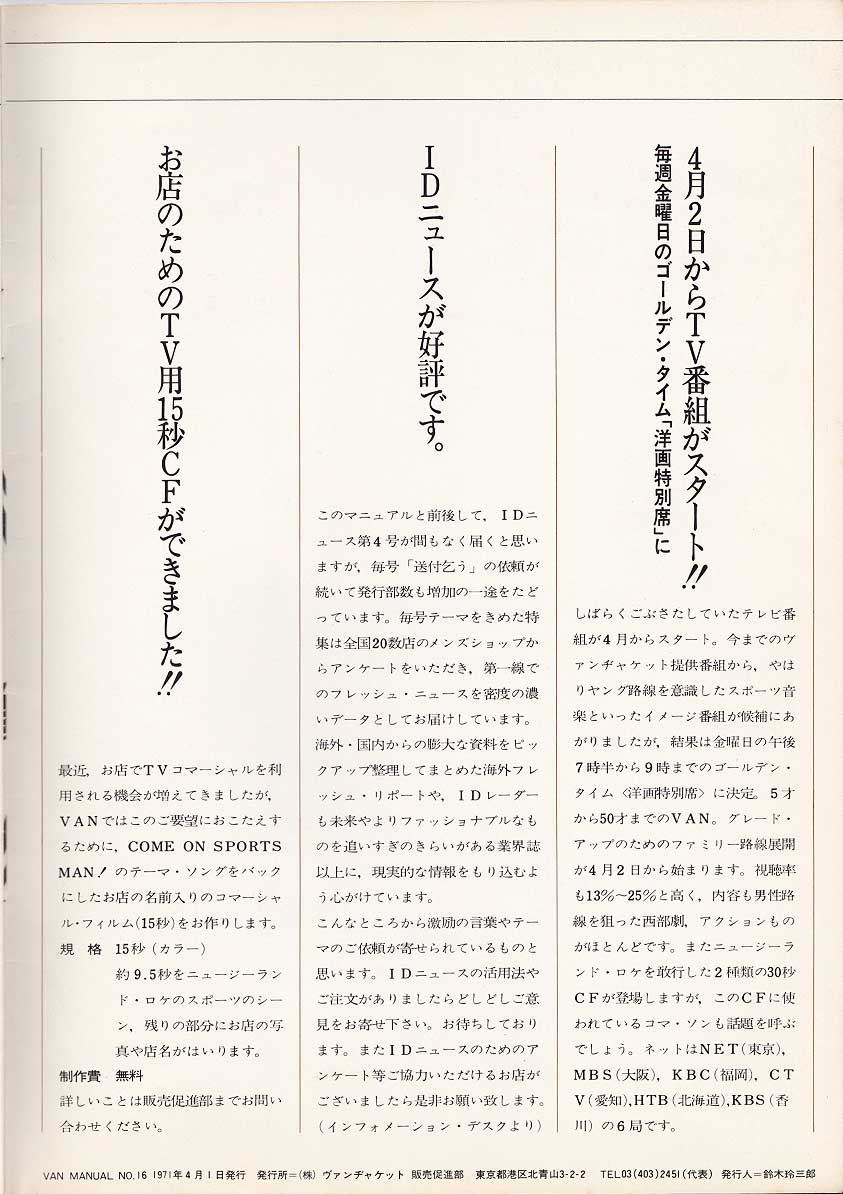 4月2日からTV番組がスタート!!
毎週金曜日のゴールデン・タイム「洋画特別席」に
しばらくごぶさたしていたテレビ番
組が4月からスタート。今までのヴ
ァンヂャケット提供番組から，やは
りヤング路線を意識したスポーツ音
楽といったイメージ番組が候補にあ
がりましたが，結果は金曜日の午後
7時半から9時までのゴールデン・
タイム〈洋画特別席〉に決定。5才
から50才までのVAN。グレード・
アップのためのファミリー路線展開
が4月2日から始まります。視聴率
も13%〜25%と高く，内容も男性路
線を狙った西部劇，アクションもの
がほとんどです。またニュージーラ
ンド・ロケを敢行した2種類の30秒
CFが登場しますが，このCFに使
われているコマ・ソンも話題を呼ぶ
でしょう。ネットはNET(東京)，
MBS(大阪)，KBC(福岡)，CT
V(愛知),HTB(北海道),KBS(香
川)の6局です。
IDニュースが好評です。
このマニュアルと前後して，IDニ
ュース第4号が間もなく届くと思い
ますが，毎号「送付乞う」の依頼が
続いて発行部数も増加の一途をたど
っています。毎号テーマをきめた特
集は全国20数店のメンズショップか
らアンケートをいただき，第一線で
のフレッシュ・ニュースを密度の濃
いデータとしてお届けしています。
海外・国内からの膨大な資料をピッ
クアップ整理してまとめた海外フレ
ッシュ・リポートや，IDレーダー
も未来やよりファッショナブルなも
のを追いすぎのきらいがある業界誌
以上に，現実的な情報をもり込むよ
う心がけています。
こんなところから激励の言葉やテー
マのご依頼が寄せられているものと
思います。IDニュースの活用法や
ご注文がありましたらどしどしご意
見をお寄せ下さい。お待ちしており
ます。またIDニュースのためのア
ンケート等ご協力いただけるお店が
ございましたら是非お願い致します。
(インフォメーション・デスクより)
お店のためのTV用15秒CFができました!!
最近，お店でTVコマーシャルを利
用される機会が増えてきましたが，
VANではこのご要望におこたえす
るために，COME ON SPORTS
MAN!のテーマ・ソングをバック
にしたお店の名前入りのコマーシャ
ル・フィルム(15秒)をお作りします。
規 格 15秒(カラー)
約9.5秒をニュージーラン
ド・ロケのスポーツのシー
ン，残りの部分にお店の写
真や店名がはいります。
制作費 無料
詳しいことは販売促進部までお問い
合わせください。
VAN MANUAL NO.16 1971年4月1日発行 発行所=(株)ヴァンヂャケット 販売促進部 東京都港区北青山3-2-2 TEL03(403)2451(代表) 発行人=鈴木玲三郎